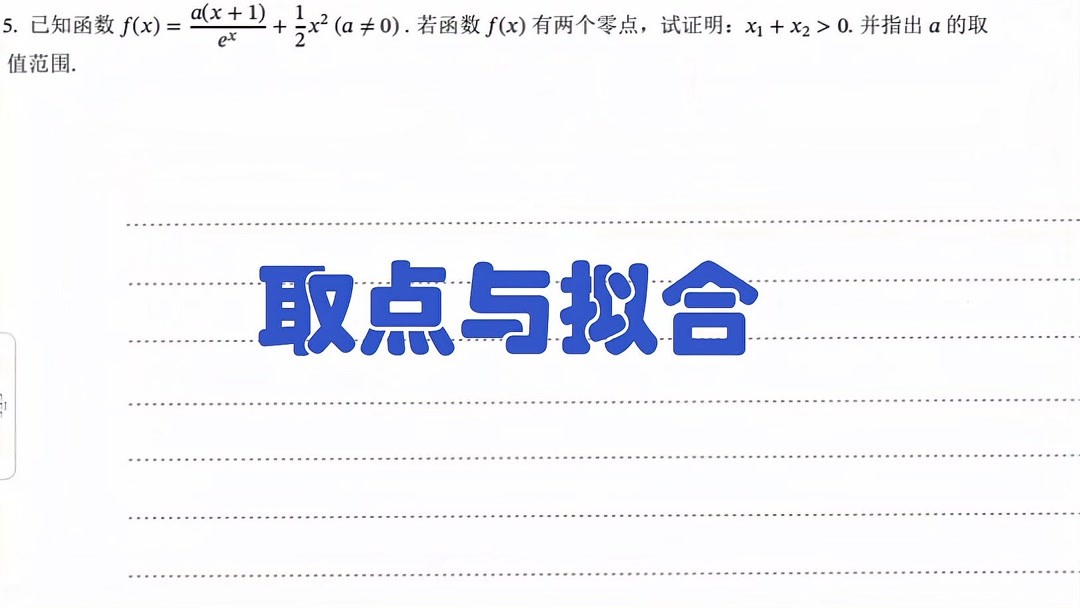 5. 已知函数 f(x) = \frac{a(x+1)}{e^x} + \frac{1}{2}x^2 (a ≠ 0). 若函数 f(x) 有两个零点，试证明：x_1 + x_2 > 0. 并指出 a 的取
值范围.
取点与拟合